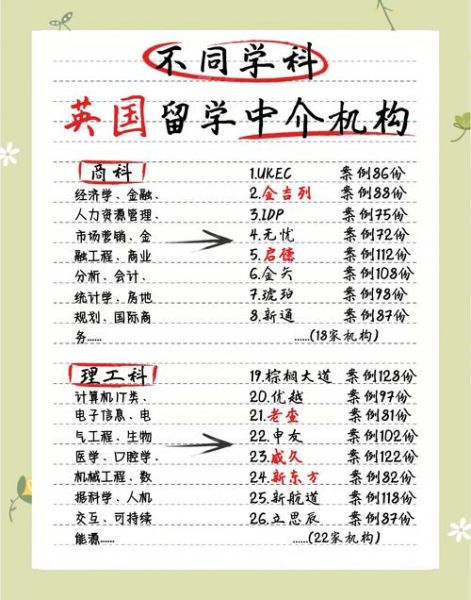 不同学科
英国留学中介机构
商科
经济学、金融、
人力资源管理、
市场营销、金
融工程、商业
分析、会计、
统计学、房地
规划、国际商
务......
1.UKEC 案例86份
2.金吉列 案例88份
3.IDP 案例75份
4.无忧 案例72份
5.启德 案例112份
6.金矢 案例108份
7.琥珀 案例98份
8.新通 案例87份
......(18家机构)
理工科
计算机IT类、
电子信息、电
气工程、生物
医学、口腔学、
机械工程、数
据科学、人机
交互、可持续
能源......
19.棕榈大道 案例128份
20.优越 案例97份
21.老查 案例81份
22.中友 案例102份
23.威久 案例122份
24.新东方 案例82份
25.新航道 案例118份
26.立思辰 案例87份
......(22家机构)